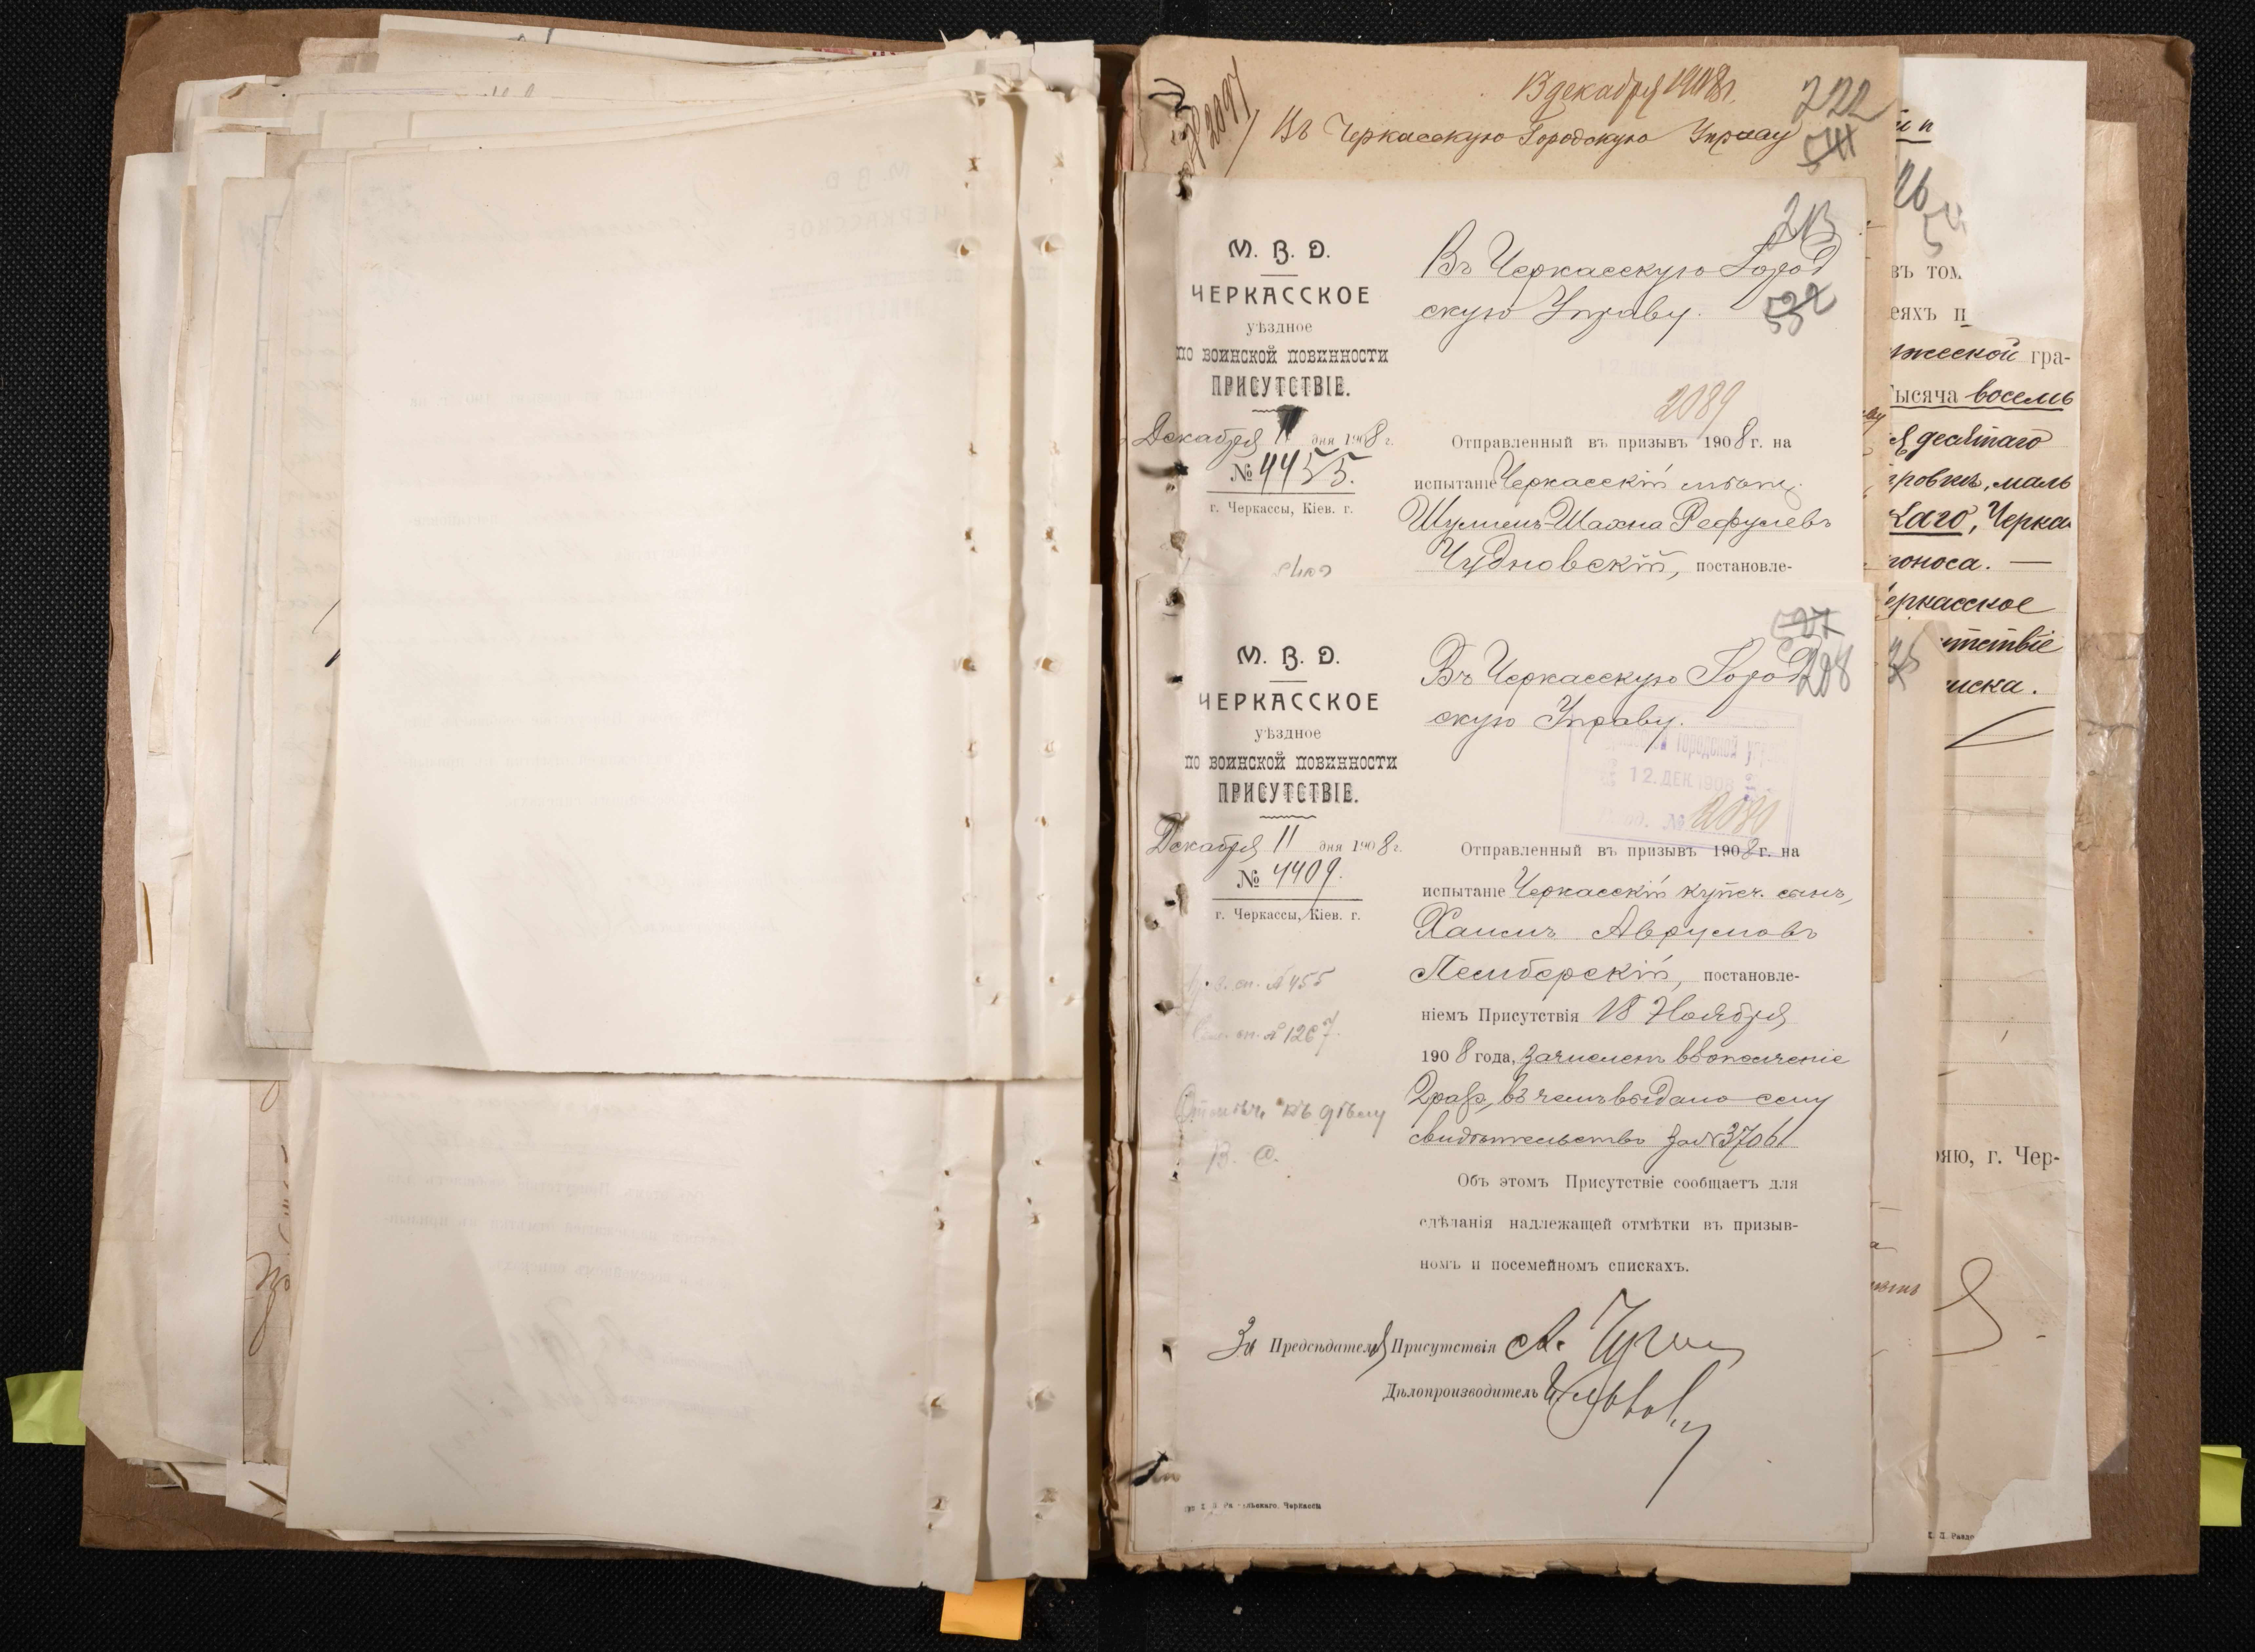 13 декабря 1908 г.
222
№ 2097
Въ Черкасскую Городскую Управу
541
213
М. В. D.
ЧЕРКАССКОЕ
уѣздное
по воинской повинности
ПРИСУТСТВІЕ.
Декабря 11 дня 1908 г.
№ 4455.
г. Черкассы, Кіев. г.
Въ Черкасскую Город
скую Управу.
532
2089
Отправленный въ призывъ 1908 г. на
испытаніе Черкасскій мѣщ.
Шулимъ-Шахна Рефулевъ
Чудновскій, постановле-
527
208
М. В. D.
ЧЕРКАССКОЕ
уѣздное
по воинской повинности
ПРИСУТСТВІЕ.
Декабря 11 дня 1908 г.
№ 4409.
г. Черкассы, Кіев. г.
№ 455
№ 1267
къ дѣлу
Въ Черкасскую Город
скую Управу.
Городской
12. ДЕК 1908
№ 2080
Отправленный въ призывъ 1908 г. на
испытаніе Черкасскій купеч. сынъ,
Хаимъ Аврумовъ
Лемберскій, постановле-
ніемъ Присутствія 18 Ноября
1908 года, зачисленъ въ ополченіе
2 разр., въ чемъ выдано ему
свидѣтельство за № 3706
Объ этомъ Присутствіе сообщаетъ для
сдѣланія надлежащей отмѣтки въ призыв-
номъ и посемейномъ спискахъ.
За Предсѣдателя Присутствія
Дѣлопроизводитель
Черкассы
26
въ том
еяхъ п
гра-
ысяча восемь
десятаго
ровка, маль
каго, Черка
поноса. —
еркасское
утствіе
иска.
ряю, г. Чер-